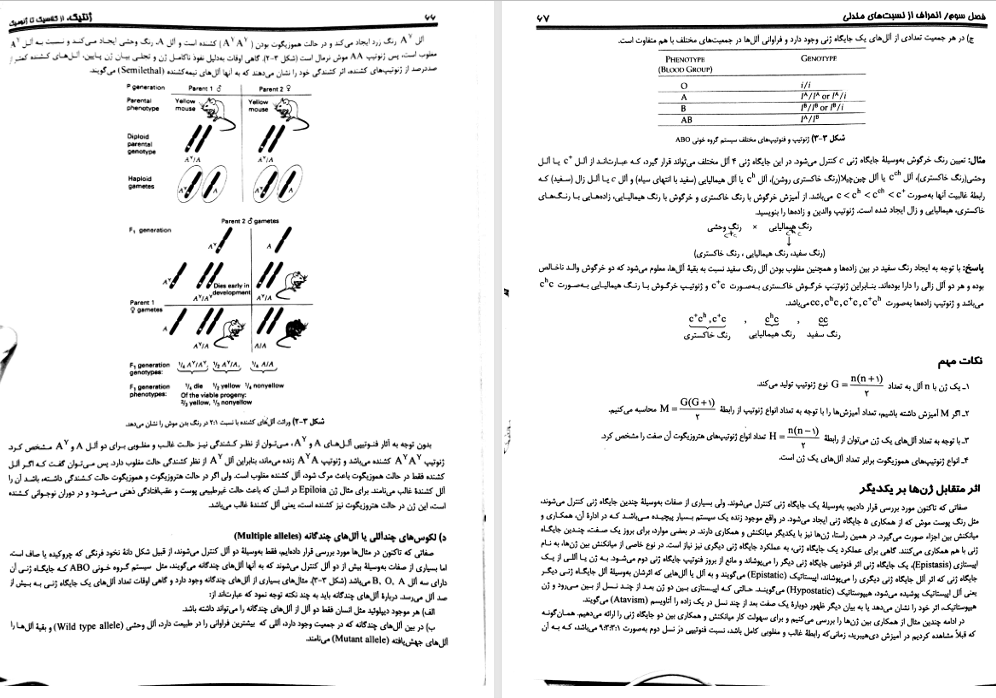 ۶۶
ژنتیک، از کلاسیک تا ژنومیک
آلل Aʸ رنگ زرد ایجاد می‌کند و در حالت هموزیگوت بودن (AʸAʸ) کشنده است و آلل A، رنگ وحشی ایجاد می‌کند و نسبت به آلل Aʸ
مغلوب است، پس ژنوتیپ AA موش نرمال است (شکل ۲-۳). گاهی اوقات به‌دلیل نفوذ ناکامل ژن و تجلی بیان ژن پایین، آلل‌های کشنده کمتر از
صددرصد از ژنوتیپ‌های کشنده، اثر کشندگی خود را نشان می‌دهند که به آنها آلل‌های نیمه‌کشنده (Semilethal) می‌گویند.
P generation Parent 1 ♂ Parent 2 ♀
Parental phenotype Yellow mouse Yellow mouse
Diploid parental genotype Aʸ/A Aʸ/A
Haploid gametes
Parent 2 ♂ gametes
F₁ generation Aʸ A
Aʸ Aʸ/Aʸ Dies early in development Aʸ/A
Parent 1 ♀ gametes
A Aʸ/A A/A
F₁ generation genotypes: ¼ Aʸ/Aʸ, ½ Aʸ/A, ¼ A/A
F₁ generation phenotypes: ¼ die ½ yellow ¼ nonyellow
Of the viable progeny:
⅔ yellow, ⅓ nonyellow
شکل ۲-۳) وراثت آلل‌های کشنده با نسبت ۲:۱ در رنگ بدن موش را نشان می‌دهد.
بدون توجه به آثار فنوتیپی آلل‌های A و Aʸ، می‌توان از نظر کشندگی نیز حالت غالب و مغلوبی برای دو آلل A و Aʸ مشخص کرد.
ژنوتیپ AʸAʸ کشنده می‌باشد و ژنوتیپ AʸA زنده می‌ماند، بنابراین آلل Aʸ از نظر کشندگی حالت مغلوب دارد. پس می‌توان گفت که اگر آلل
کشنده فقط در حالت هموزیگوت باعث مرگ شود، آلل کشنده مغلوب است. ولی اگر در حالت هتروزیگوت و هموزیگوت حالت کشندگی داشته، باشد آن را
آلل کشندهٔ غالب می‌نامند. برای مثال ژن Epiloia در انسان که باعث حالت غیرطبیعی پوست و عقب‌افتادگی ذهنی می‌شود و در دوران نوجوانی کشنده
است، این ژن در حالت هتروزیگوت نیز کشنده است، یعنی آلل کشندهٔ غالب می‌باشد.
د) لکوس‌های چندآللی یا آلل‌های چندگانه (Multiple alleles)
صفاتی که تاکنون در مثال‌ها مورد بررسی قرار داده‌ایم، فقط به‌وسیلهٔ دو آلل کنترل می‌شوند، از قبیل شکل دانهٔ نخود فرنگی که چروکیده یا صاف است.
اما بسیاری از صفات به‌وسیلهٔ بیش از دو آلل کنترل می‌شوند که به آنها آلل‌های چندگانه می‌گویند، مثل سیستم گروه خونی ABO که جایگاه ژنی آن
دارای سه آلل A، O، B می‌باشد (شکل ۳-۳). مثال‌های بسیاری از آلل‌های چندگانه وجود دارد و گاهی اوقات تعداد آلل‌های یک جایگاه ژنی به بیش از
صد آلل می‌رسد. دربارهٔ آلل‌های چندگانه باید به چند نکته توجه نمود که عبارت‌اند از:
الف) هر موجود دیپلوئید مثل انسان فقط دو آلل از آلل‌های چندگانه را می‌تواند داشته باشد.
ب) در بین آلل‌های چندگانه که در جمعیت وجود دارد، آللی که بیشترین فراوانی را در طبیعت دارد، آلل وحشی (Wild type allele) و بقیهٔ آلل‌ها را
آلل‌های جهش‌یافته (Mutant allele) می‌نامند.
فصل سوم/ انحراف از نسبت‌های مندلی
۶۷
ج) در هر جمعیت تعدادی از آلل‌های یک جایگاه ژنی وجود دارد و فراوانی آلل‌ها در جمعیت‌های مختلف با هم متفاوت است.
PHENOTYPE (BLOOD GROUP) GENOTYPE
O i/i
A Iᴬ/Iᴬ or Iᴬ/i
B Iᴮ/Iᴮ or Iᴮ/i
AB Iᴬ/Iᴮ
شکل ۳-۳) ژنوتیپ و فنوتیپ‌های مختلف سیستم گروه خونی ABO
مثال: تعیین رنگ خرگوش به‌وسیلهٔ جایگاه ژنی c کنترل می‌شود. در این جایگاه ژنی ۴ آلل مختلف می‌تواند قرار گیرد، که عبارت‌اند از آلل c⁺ یا آلل
وحشی(رنگ خاکستری)، آلل cᶜʰ یا آلل چین‌چیلا(رنگ خاکستری روشن)، آلل cʰ یا آلل هیمالیایی (سفید با انتهای سیاه) و آلل c یا آلل زال (سفید) که
رابطهٔ غالبیت آنها به‌صورت c < cʰ < cᶜʰ < c⁺ می‌باشد. از آمیزش خرگوش با رنگ خاکستری و خرگوش با رنگ هیمالیایی، زاده‌هایی با رنگ‌های
خاکستری، هیمالیایی و زال ایجاد شده است. ژنوتیپ والدین و زاده‌ها را بنویسید.
رنگ هیمالیایی × رنگ وحشی
↓
(رنگ سفید، رنگ هیمالیایی ، رنگ خاکستری)
پاسخ: با توجه به ایجاد رنگ سفید در بین زاده‌ها و همچنین مغلوب بودن آلل رنگ سفید نسبت به بقیهٔ آلل‌ها، معلوم می‌شود که دو خرگوش والد ناخالص
بوده و هر دو آلل زالی را دارا بوده‌اند. بنابراین ژنوتیپ خرگوش خاکستری به‌صورت c⁺c و ژنوتیپ خرگوش با رنگ هیمالیایی به‌صورت cʰc
می‌باشد و ژنوتیپ زاده‌ها به‌صورت cc, cʰc, c⁺c, c⁺cʰ می‌باشد.
c⁺cʰ, c⁺c , cʰc , cc
رنگ خاکستری رنگ هیمالیایی رنگ سفید
نکات مهم
۱ـ یک ژن با n آلل به تعداد G = n(n+۱)/۲ نوع ژنوتیپ تولید می‌کند.
۲ـ اگر M آمیزش داشته باشیم، تعداد آمیزش‌ها را با توجه به تعداد انواع ژنوتیپ از رابطهٔ M = G(G+۱)/۲ محاسبه می‌کنیم.
۳ـ با توجه به تعداد آلل‌های یک ژن می‌توان از رابطهٔ H = n(n−۱)/۲ تعداد انواع ژنوتیپ‌های هتروزیگوت آن صفت را مشخص کرد.
۴ـ انواع ژنوتیپ‌های هموزیگوت برابر تعداد آلل‌های یک ژن است.
اثر متقابل ژن‌ها بر یکدیگر
صفاتی که تاکنون مورد بررسی قرار دادیم، به‌وسیلهٔ یک جایگاه ژنی کنترل می‌شوند. ولی بسیاری از صفات به‌وسیلهٔ چندین جایگاه ژنی کنترل می‌شوند،
مثل رنگ پوست موش که از همکاری ۵ جایگاه ژنی ایجاد می‌شود. در واقع موجود زنده یک سیستم بسیار پیچیده می‌باشد که در ادارهٔ آن، همکاری و
میانکنش بین اجزاء صورت می‌گیرد. در همین راستا، ژن‌ها نیز با یکدیگر میانکنش و همکاری دارند. در بعضی موارد، برای بروز یک صفت، چندین جایگاه
ژنی با هم همکاری می‌کنند. گاهی برای عملکرد یک جایگاه ژنی، به عملکرد جایگاه ژنی دیگری نیز نیاز است. در نوع خاصی از میانکنش بین ژن‌ها، به نام
اپیستازی (Epistasis)، یک جایگاه ژنی اثر فنوتیپی جایگاه ژنی دیگر را می‌پوشاند و مانع از بروز فنوتیپ جایگاه ژنی دوم می‌شود. به ژن یا آللی از یک
جایگاه ژنی که اثر آلل جایگاه ژنی دیگری را می‌پوشاند، اپیستاتیک (Epistatic) می‌گویند و به آلل یا آلل‌هایی که اثرشان به‌وسیلهٔ آلل جایگاه ژنی دیگر
یعنی آلل اپیستاتیک پوشیده می‌شود، هیپوستاتیک (Hypostatic) می‌گویند. حالتی که اپیستازی بین دو ژن بعد از چند نسل از بین می‌رود و ژن
هیپوستاتیک، اثر خود را نشان می‌دهد یا به بیان دیگر ظهور دوبارهٔ یک صفت بعد از چند نسل در یک زاده را آتاویسم (Atavism) می‌گویند.
در ادامه چندین مثال از همکاری بین ژن‌ها را بررسی می‌کنیم و برای سهولت کار میانکنش و همکاری بین دو جایگاه ژنی را ارائه می‌دهیم. همان‌گونه
که قبلاً مشاهده کردیم در آمیزش دی‌هیبرید، زمانی‌که رابطهٔ غالب و مغلوبی کامل باشد، نسبت فنوتیپی در نسل دوم به‌صورت ۹:۳:۳:۱ می‌باشد، که به آن